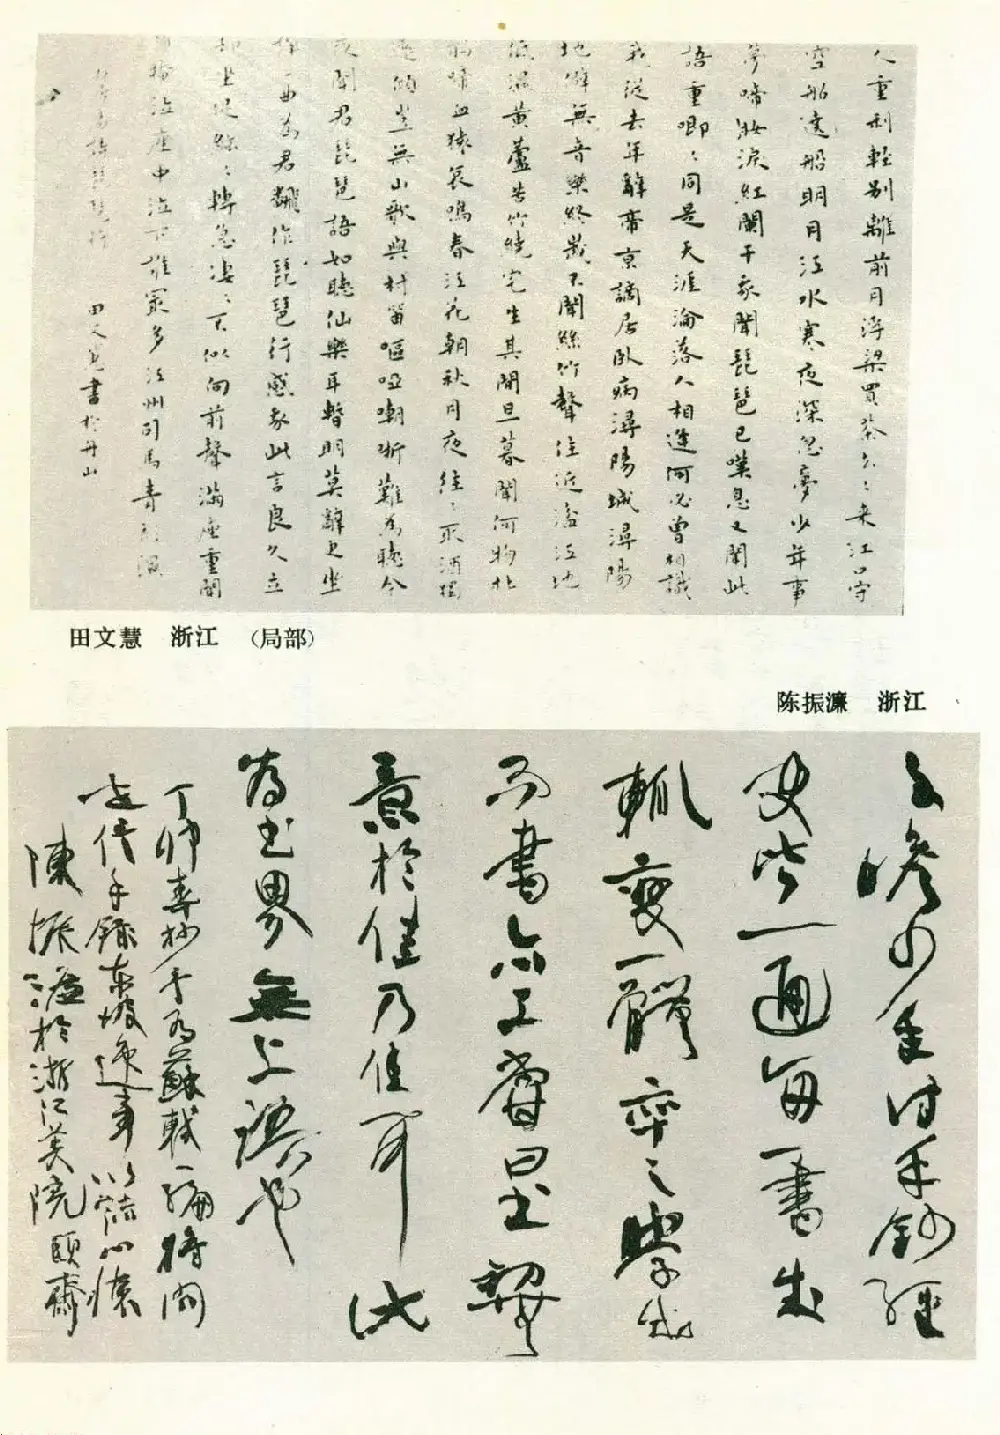 人重利輕别離前月浮梁買茶去〻来江口守
空船遶船明月江水寒夜深忽夢少年事
夢啼妝淚紅闌干我聞琵琶已嘆息又聞此
語重唧〻同是天涯淪落人相逢何必曾相識
我從去年辭帝京謫居臥病潯陽城潯陽
地僻無音樂終歲不聞絲竹聲住近湓江地
低濕黄蘆苦竹繞宅生其間旦暮聞何物杜
鵑啼血猿哀鳴春江花朝秋月夜往〻取酒獨
還傾豈無山歌與村笛嘔啞嘲哳難為聽今
夜聞君琵琶語如聽仙樂耳暫明莫辭更坐
曲為君翻作琵琶行感我此言良久立
却坐促絃〻轉急凄〻不似向前聲滿座重聞
掩泣座中泣下誰最多江州司馬青衫濕
琵琶行
田文慧書於丹山
田文慧 浙江 （局部）
陈振濂 浙江
子瞻少年時手鈔經
史皆一通每一書成
輒變一體卒之學成
而書亦工嘗曰
意於佳乃佳耳此
為書界無上語也
丁卯春抄蘇軾一編
手錄東坡逸事以舒心懷
陳振濂於浙江美院頤齋